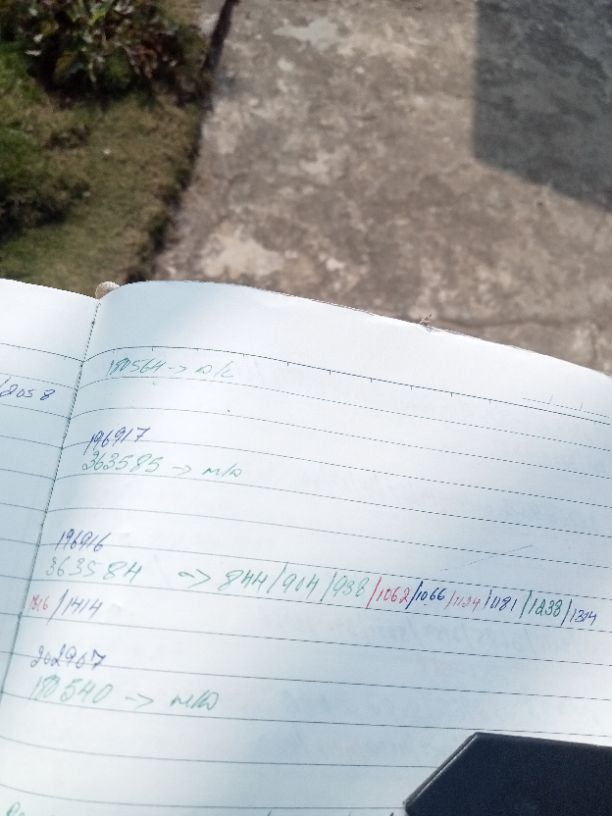 /2058
180564 ->
196917
363585 ->
196916
363584 -> 844/904/938/1062/1066/1124/1181/1233/1304
/1414
202967
180540 ->